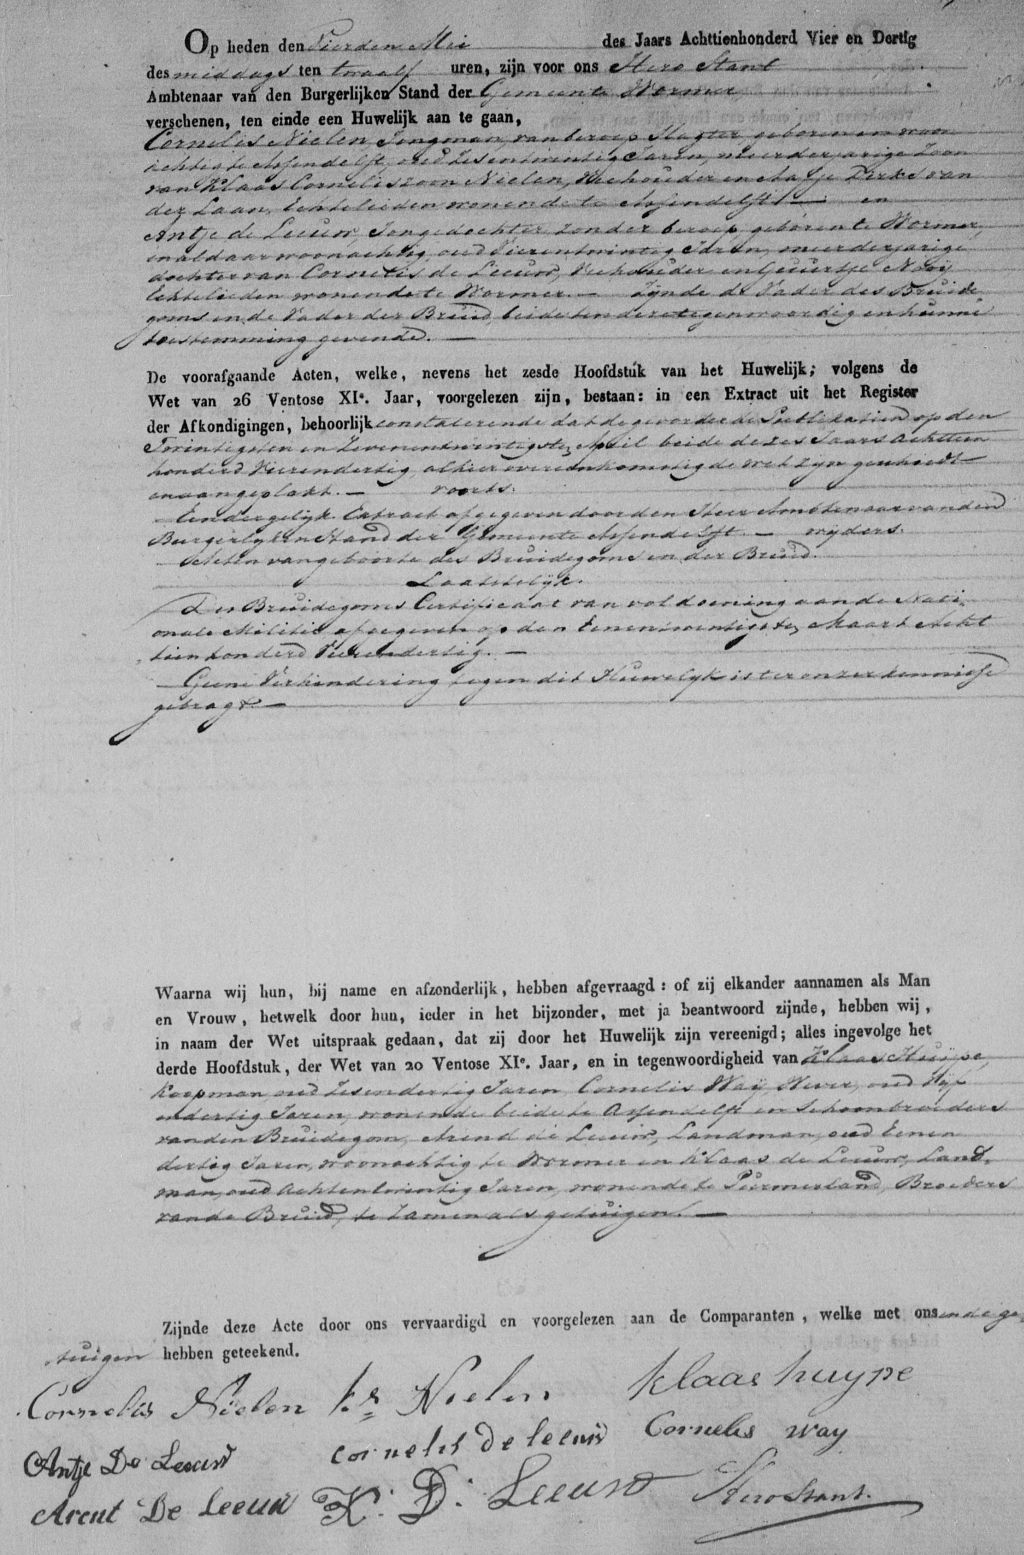 Op heden den Vierden Mei des Jaars Achttienhonderd Vier en Dertig
des middags ten twaalf uren, zijn voor ons Hero Stant
Ambtenaar van den Burgerlijken Stand der Gemeente Wormer
verschenen, ten einde een Huwelijk aan te gaan,
Cornelis Nielen, Jongman, van beroep Slagter, geboren en woon
achtig te Assendelft, oud Zesentwintig Jaren, meerderjarige Zoon
van Klaas Corneliszoon Nielen, Veehouder en Aafje Dirks van
der Laan, Echtelieden wonende te Assendelft. — en
Antje de Leeuw, Jongedochter zonder beroep, geboren te Wormer,
en aldaar woonachtig, oud Vierentwintig Jaren, meerderjarige
dochter van Cornelis de Leeuw, Veehouder en Geuertje Nooij
Echtelieden wonende te Wormer. — Zijnde de Vader des Bruide
goms en de Vader der Bruid, beide ten dezen tegenwoordig en hunne
toestemming gevende. —
De voorafgaande Acten, welke, nevens het zesde Hoofdstuk van het Huwelijk; volgens de
Wet van 26 Ventose XIe. Jaar, voorgelezen zijn, bestaan: in een Extract uit het Register
der Afkondigingen, behoorlijk constaterende dat de gevorderde Publikatien op den
Twintigsten en Zevenentwintigsten April beide dezes Jaars Achttien
honderd Vierendertig, alhier overeenkomstig de wet zijn geschiedt
en aangeplakt. — voorts.
Een dergelijk Extract afgegeven door den Heer Ambtenaar van den
Burgerlijken Stand der Gemeente Assendelft. — wijders.
Acten van geboorte des Bruidegoms en der Bruid.
Laatstelijk.
Des Bruidegoms Certificaat van voldoening aan de Nati-
onale Militie afgegeven op den Eenentwintigsten Maart Acht
tienhonderd Vierendertig. —
Geene Verhindering tegen dit Huwelijk is ter onzer kennisse
gebragt. —
Waarna wij hun, bij name en afzonderlijk, hebben afgevraagd: of zij elkander aannamen als Man
en Vrouw, hetwelk door hun, ieder in het bijzonder, met ja beantwoord zijnde, hebben wij,
in naam der Wet uitspraak gedaan, dat zij door het Huwelijk zijn vereenigd; alles ingevolge het
derde Hoofdstuk, der Wet van 20 Ventose XIe. Jaar, en in tegenwoordigheid van Klaas Huijpe,
Koopman oud Zesendertig Jaren, Cornelis Waij, Wever, oud Vijf
endertig Jaren, wonende beide te Assendelft en Schoonbroeders
van den Bruidegom, Arend de Leeuw, Landman, oud Eenen
dertig Jaren, woonachtig te Wormer en Klaas de Leeuw, Land-
man, oud Achtentwintig Jaren, wonende te Purmerland, Broeders
van de Bruid, te zamen als getuigen. —
Zijnde deze Acte door ons vervaardigd en voorgelezen aan de Comparanten, welke met ons en de ge-
tuigen hebben geteekend.
Cornelis Nielen Ks Nielen Klaas huijpe
Antje De Leeuw cornelis de leeuw Cornelis way
Arent De Leeuw K. D. Leeuw Hero Stant.